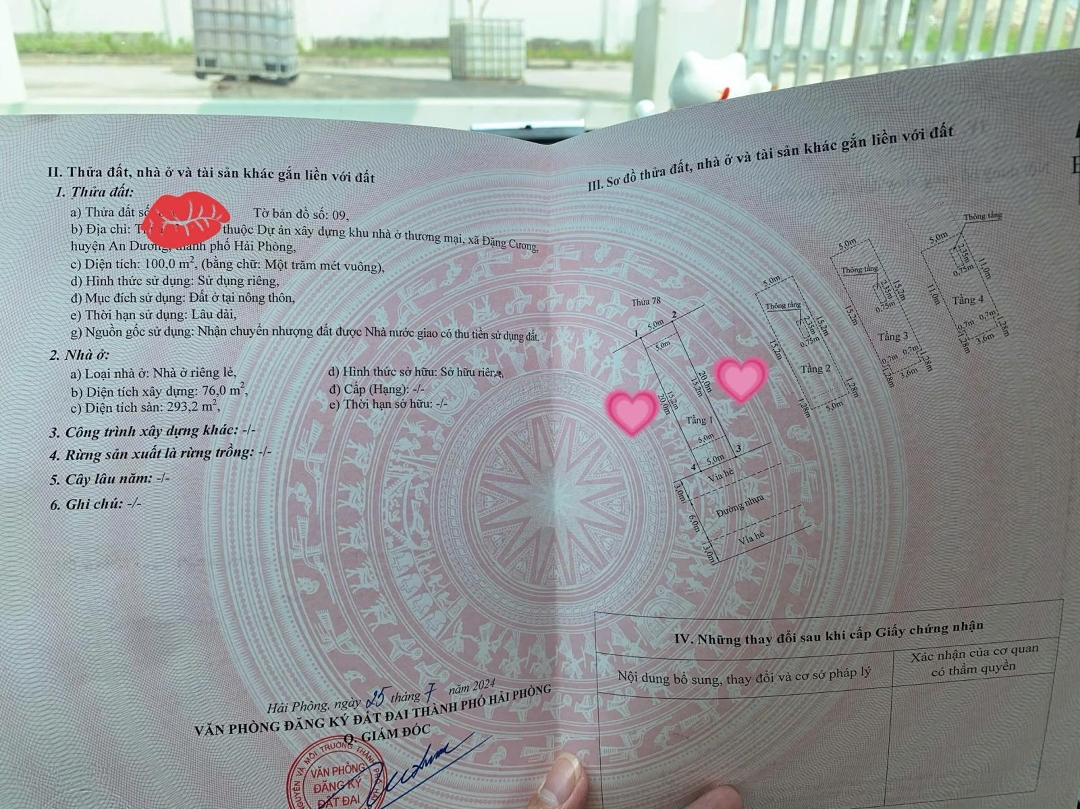 II. Thửa đất, nhà ở và tài sản khác gắn liền với đất
1. Thửa đất:
a) Thửa đất số Tờ bản đồ số: 09,
b) Địa chỉ: thuộc Dự án xây dựng khu nhà ở thương mại, xã Đặng Cương,
huyện An Dương, thành phố Hải Phòng,
c) Diện tích: 100,0 m², (bằng chữ: Một trăm mét vuông),
d) Hình thức sử dụng: Sử dụng riêng,
đ) Mục đích sử dụng: Đất ở tại nông thôn,
e) Thời hạn sử dụng: Lâu dài,
g) Nguồn gốc sử dụng: Nhận chuyển nhượng đất được Nhà nước giao có thu tiền sử dụng đất.
2. Nhà ở:
a) Loại nhà ở: Nhà ở riêng lẻ,
b) Diện tích xây dựng: 76,0 m²,
c) Diện tích sàn: 293,2 m²,
d) Hình thức sở hữu: Sở hữu riêng,
đ) Cấp (Hạng): -/-
e) Thời hạn sở hữu: -/-
3. Công trình xây dựng khác: -/-
4. Rừng sản xuất là rừng trồng: -/-
5. Cây lâu năm: -/-
6. Ghi chú: -/-
Hải Phòng, ngày 25 tháng 7 năm 2024
VĂN PHÒNG ĐĂNG KÝ ĐẤT ĐAI THÀNH PHỐ HẢI PHÒNG
Q. GIÁM ĐỐC
VĂN PHÒNG
ĐĂNG KÝ
ĐẤT ĐAI
III. Sơ đồ thửa đất, nhà ở và tài sản khác gắn liền với đất
Thửa 78
1
5,0m
2
5,0m
20,0m
15,2m
15,2m
20,0m
Tầng 1
5,0m
4
5,0m
3
Vỉa hè
3,0m
Đường nhựa
6,0m
Vỉa hè
3,0m
5,0m
Thông tầng
15,2m
2,35m
0,75m
15,2m
Tầng 2
1,28m
1,28m
5,0m
5,0m
Thông tầng
2,35m
15,2m
0,75m
15,2m
Tầng 3
0,7m
0,7m
1,28m
1,28m
3,6m
Thông tầng
5,0m
2,35m
11,0m
0,75m
11,0m
Tầng 4
0,7m
0,7m
1,28m
1,28m
3,6m
IV. Những thay đổi sau khi cấp Giấy chứng nhận
Nội dung bổ sung, thay đổi và cơ sở pháp lý
Xác nhận của cơ quan
có thẩm quyền